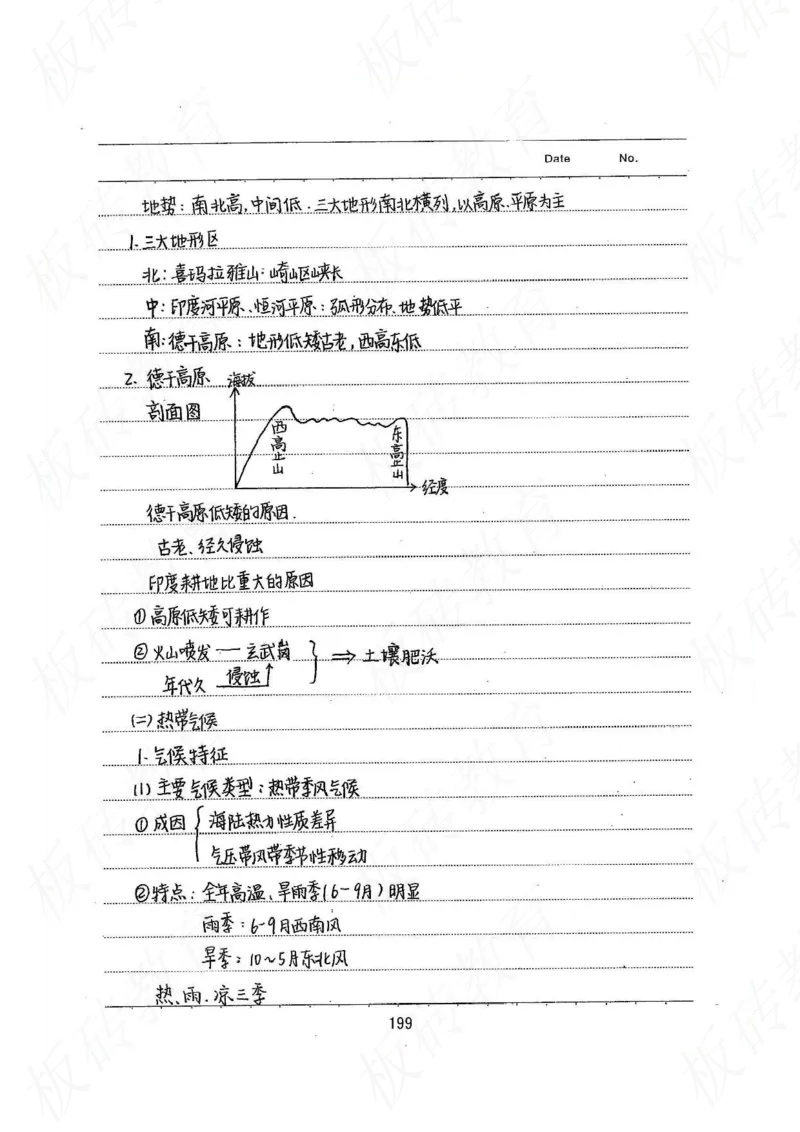 Date No.
地势：南北高，中间低．三大地形南北横列，以高原、平原为主
1.三大地形区
北：喜玛拉雅山：崎山区峡长
中：印度河平原、恒河平原：弧形分布、地势低平
南：德干高原：地形低矮古老，西高东低
2. 德干高原
剖面图
海拔
西高止山
东高止山
经度
德干高原低矮的原因．
古老、经久侵蚀
印度耕地比重大的原因
①高原低矮可耕作
②火山喷发——玄武岗 ⇒ 土壤肥沃
年代久 侵蚀↑
(二)热带气候
1.气候特征
(1)主要气候类型：热带季风气候
①成因 海陆热力性质差异
气压带风带季节性移动
②特点：全年高温、旱雨季(6-9月)明显
雨季：6-9月西南风
旱季：10~5月东北风
热、雨．凉三季
199
板砖教育